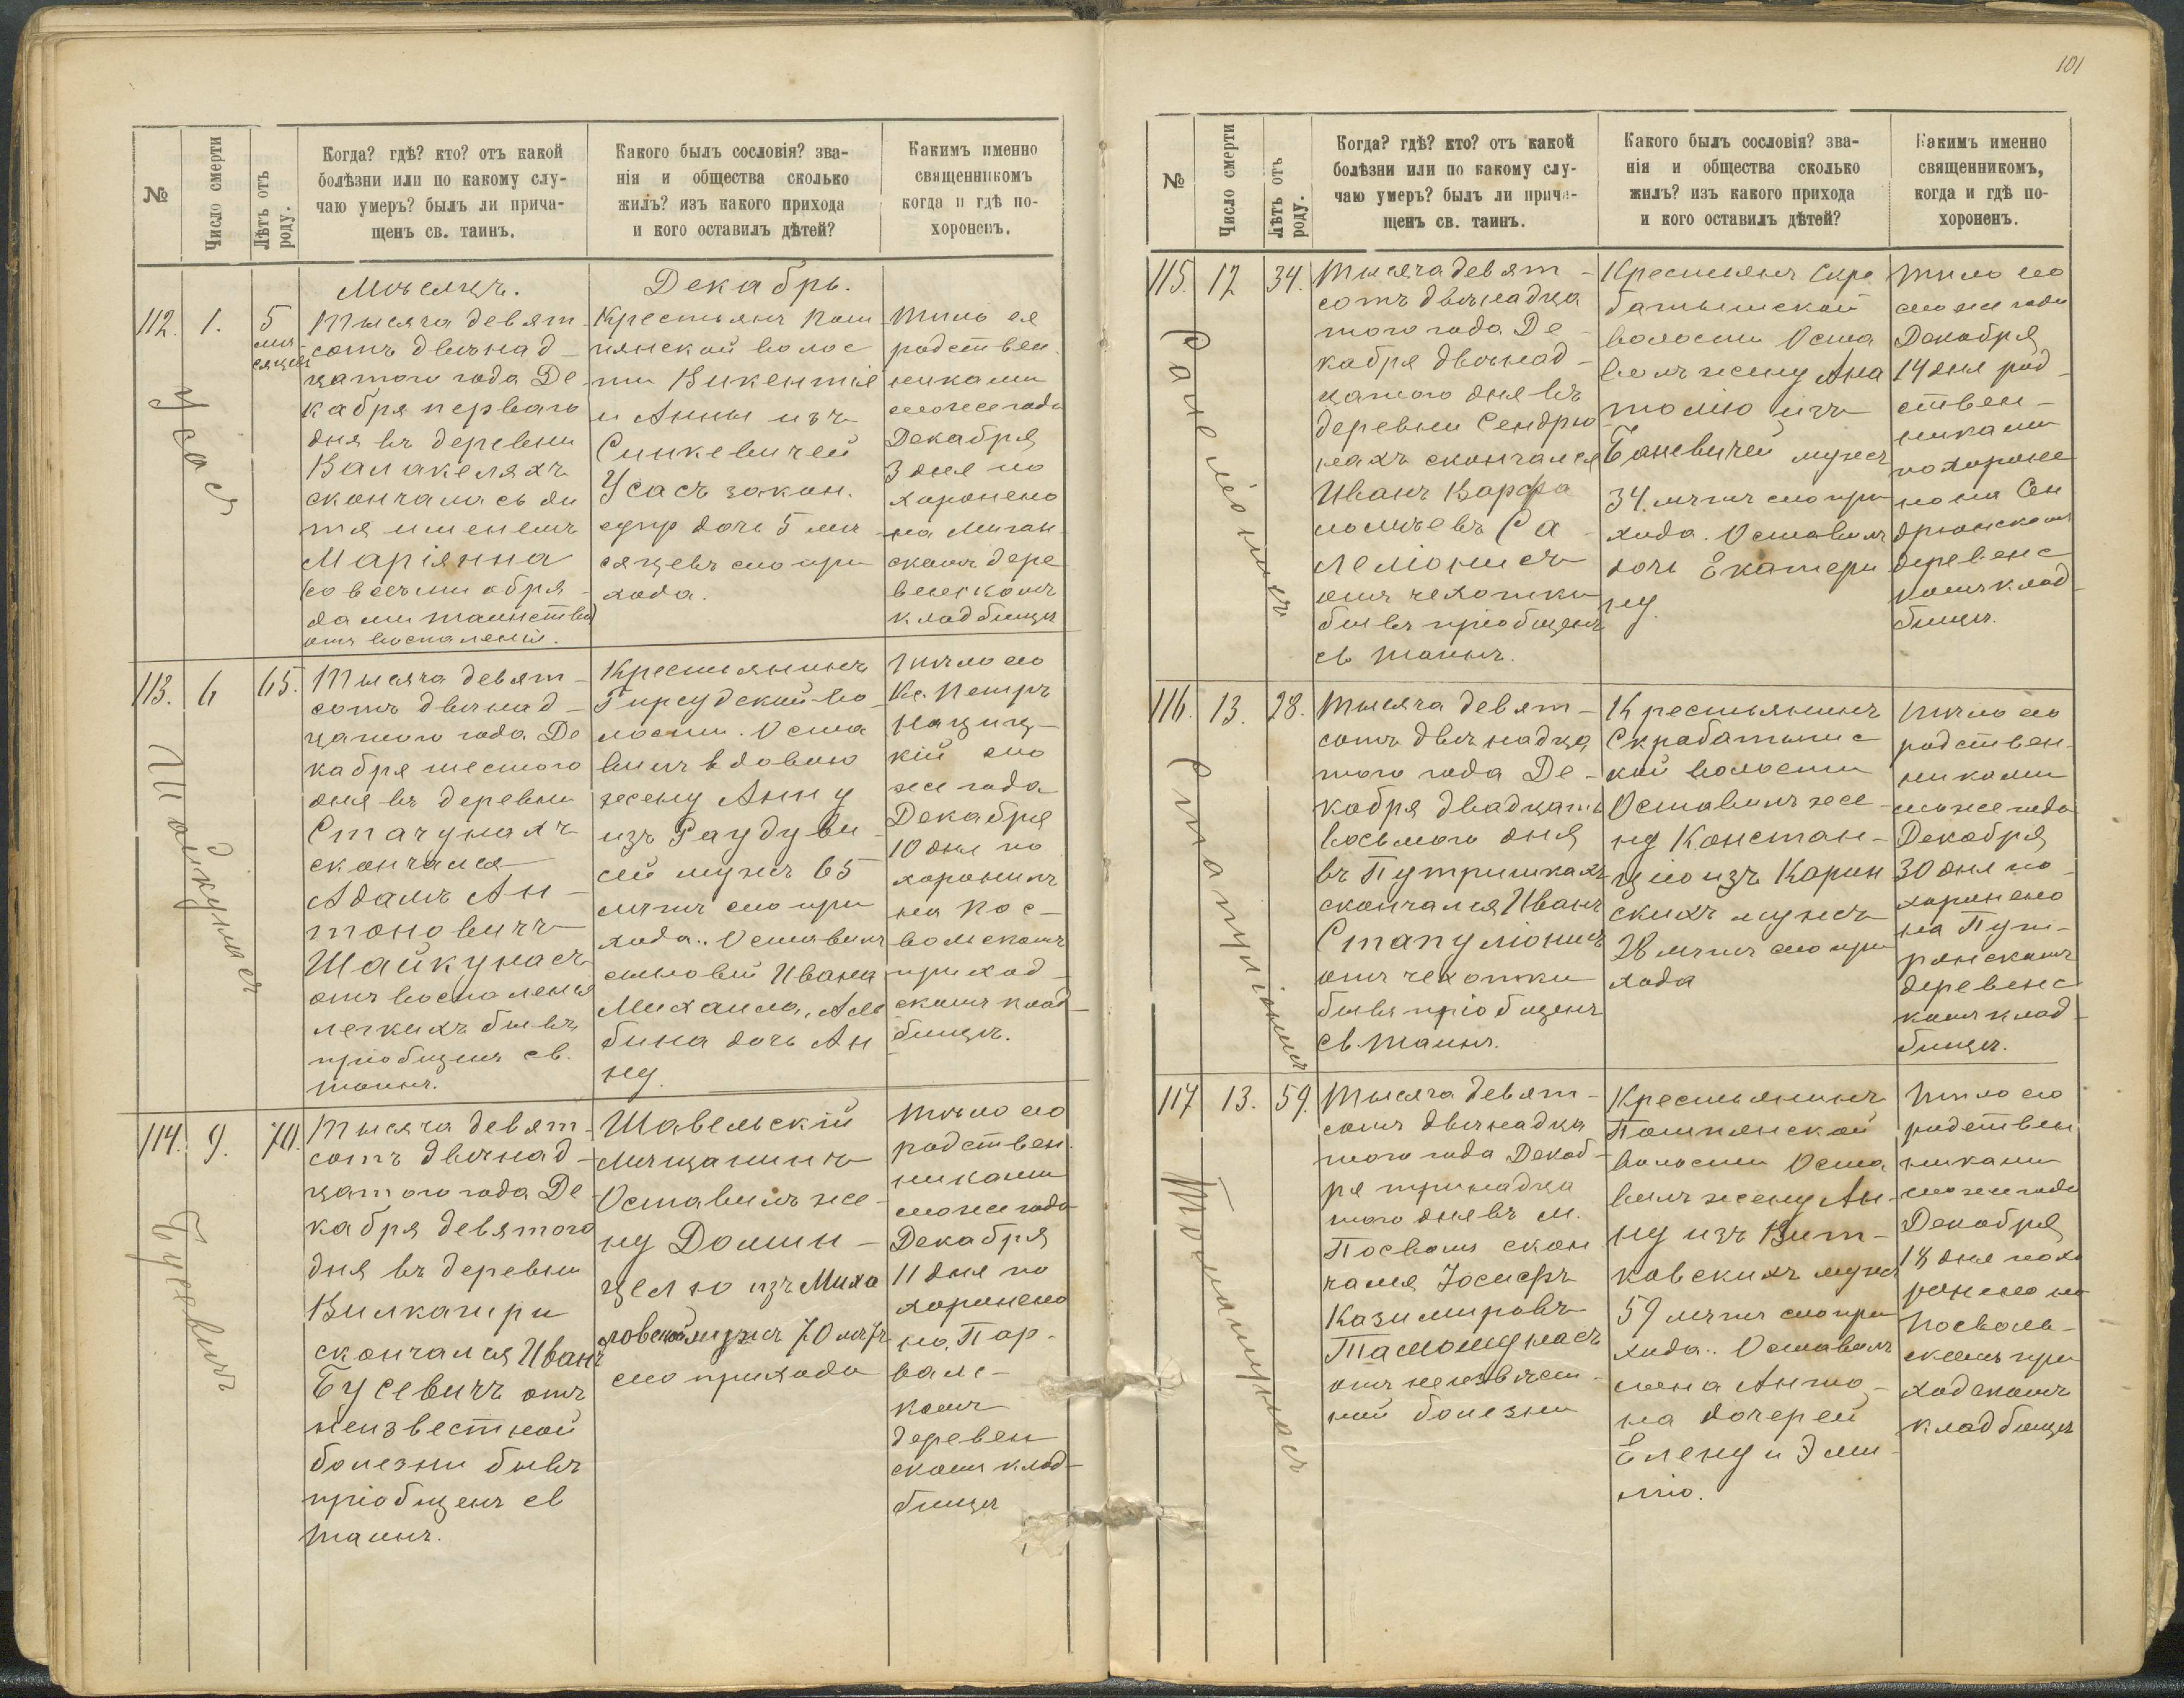 №
Число смерти
Лѣтъ отъ
роду.
Когда? гдѣ? кто? отъ какой
болѣзни или по какому слу-
чаю умеръ? былъ ли прича-
щенъ св. таинъ.
Какого былъ сословія? зва-
нія и общества сколько
жилъ? изъ какого прихода
и кого оставилъ дѣтей?
Какимъ именно
священникомъ
когда и гдѣ по-
хороненъ.
Мѣсяцъ.
Декабрь.
112.
1.
5
мѣ
сяцевъ
Усасъ
Тысяча девят-
сотъ двѣнад-
цатого года Де-
кабря перваго
дня въ деревни
Валакеляхъ
скончалась ди
тя именемъ
Маріянна
со всѣми обря-
дами таинства
отъ воспаленій.
Крестьянъ Пош
нянской волос
ти Викентія
и Анны изъ
Синкевичей
Усасъ закон.
супр дочь 5 мѣ
сяцевъ сего при
хода.
Тѣло ея
родствен
никами
сегоже года
Декабря
3 дня по
хоронено
на Миган
скомъ дере
венскомъ
кладбищѣ
113.
6
65.
Шайкунасъ
Тысяча девят-
сотъ двѣнад-
цатого года Де
кабря шестого
дня въ деревни
Стачунахъ
скончался
Адамъ Ан-
тоновичъ
Шайкунасъ
отъ воспаленія
легкихъ бывъ
пріобщенъ св.
таинъ.
Крестьянинъ
Гирсудской во-
лости. Оста
вилъ вдовою
жену Анну
изъ Раудуви
ей мужъ 65
лѣтъ сего при
хода.. Оставилъ
сыновей Ивана
Михаила, Аль
бина дочь Ан
ну.
Тѣло его
Кс. Петръ
Нациц-
кій сего
же года
Декабря
10 дня по
хоронилъ
на Пос-
вольскомъ
приход-
скомъ клад-
бищѣ.
114.
9.
70.
Бусевичъ
Тысяча девят-
сотъ двѣнад-
цатого года Де
кабря девятого
дня въ деревни
Вилкагири
скончался Иванъ
Бусевичъ отъ
неизвестной
болезни бывъ
пріобщенъ св
таинъ.
Шавельскій
мѣщанинъ
Оставилъ же-
ну Домин-
целю изъ Миха
ловской мужъ 70 лѣтъ
сего прихода
Тѣло его
родствен.
никами
сегоже года
Декабря
11 дня по
хоронено
на Пар-
валс-
комъ
деревен
скомъ клад-
бищѣ
101
№
Число смерти
Лѣтъ отъ
роду.
Когда? гдѣ? кто? отъ какой
болѣзни или по какому слу-
чаю умеръ? былъ ли прича-
щенъ св. таинъ.
Какого былъ сословія? зва-
нія и общества сколько
жилъ? изъ какого прихода
и кого оставилъ дѣтей?
Какимъ именно
священникомъ,
когда и гдѣ по-
хороненъ.
115.
12
34.
Тысяча девят-
сотъ двѣнадца
того года Де-
кабря двѣнад-
цатого дня въ
деревни Сендрю
нахъ скончался
Иванъ
Са-
леміонисъ
отъ чехотки
бывъ пріобщенъ
св таинъ.
Крестьянъ Скро
батышской
волости Оста
вилъ жену Ана
толію изъ
Баневичей мужъ
34 лѣтъ сего при
хода. Оставилъ
дочь Екатери
ну.
Тѣло его
сегоже года
Декабря
14 дня род-
ствен-
никами
похороне
но на Сен
дрюнскомъ
деревенс
комъ клад-
бищѣ.
116.
13.
28.
Тысяча девят-
сотъ двѣнадца
того года Де-
кабря двадцать
восьмого дня
въ Путришкахъ
скончался Иванъ
отъ чехотки
бывъ пріобщенъ
св. таинъ.
Крестьянинъ
Скробатышс
кой волости
Оставилъ же-
ну Констан-
цію изъ Карин
скихъ мужъ
28 лѣтъ сего при
хода
Тѣло его
родствен-
никами
сегоже года
Декабря
30 дня по-
хоронено
на Пут-
рянскомъ
деревенс
комъ клад-
бищѣ.
117
13.
59.
Тамошунасъ
Тысяча девят-
сотъ двѣнадца
того года Декаб-
ря тринадца
того дня въ м.
Посволь скон
чался Іосифъ
Казимировъ
Тамошунасъ
отъ неизвѣст-
ной болезни
Крестьянинъ
Пошнянской
волости Оста
вилъ жену Ан-
ну изъ Вит-
ковскихъ мужъ
59 лѣтъ сего при
хода.. Оставилъ
сына Анто-
на дочерей
Елену и Эми-
лію.
Тѣло его
родствен
никами
сегоже года
Декабря
18 дня похо
ронено на
Посволь-
скомъ при
ходскомъ
кладбищѣ